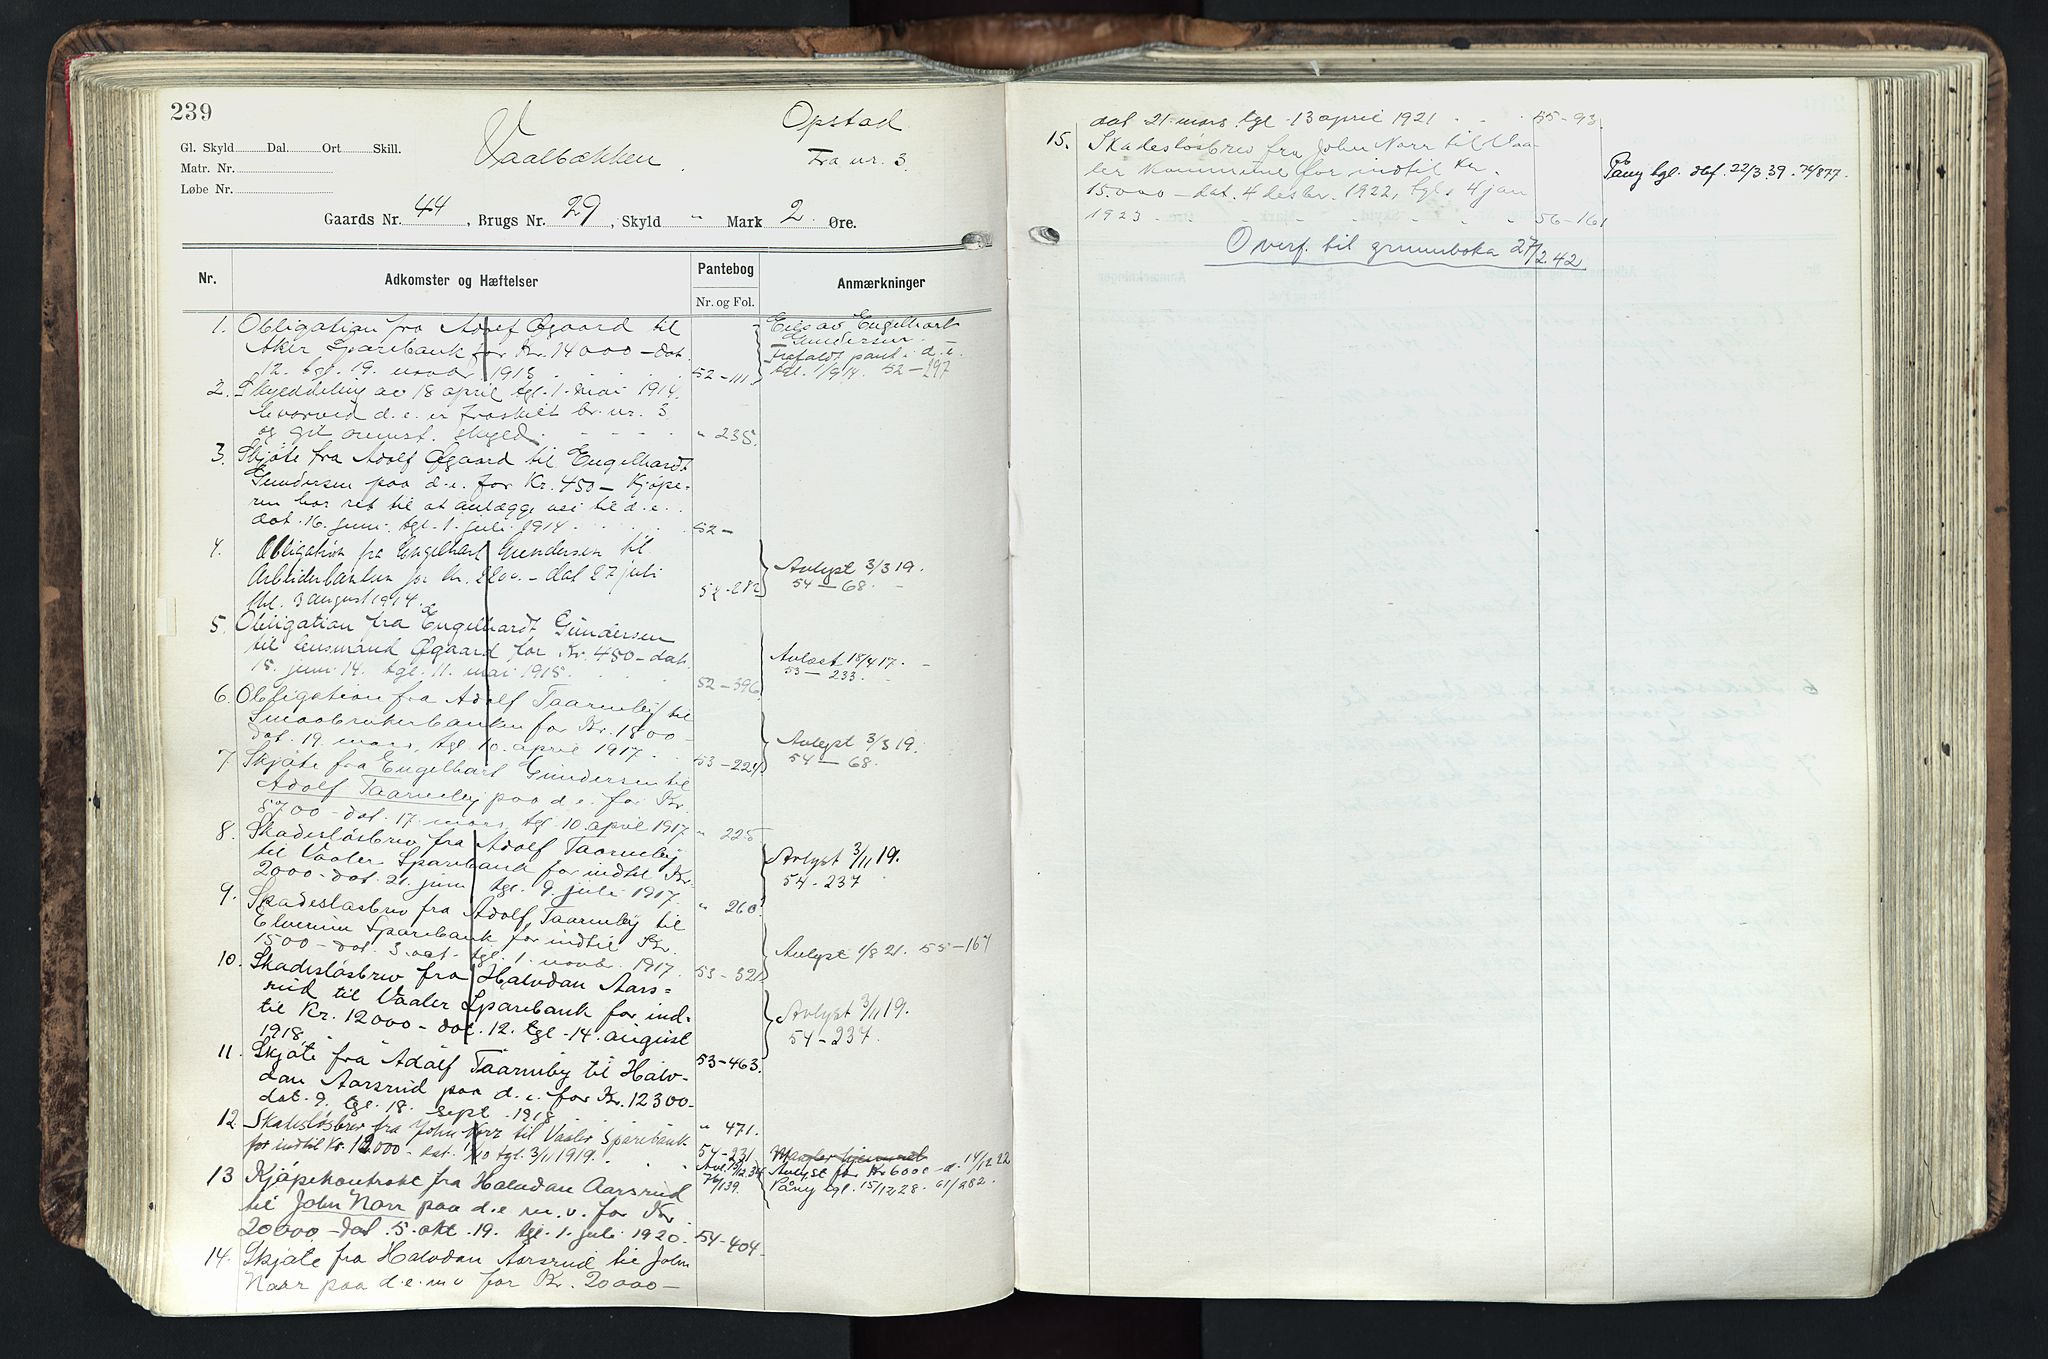 239
Opstad
Gl. Skyld Dal. Ort Skill.
Vaalbækken
Fra nr. 3
Matr. Nr.
Løbe Nr.
Gaards Nr. 44, Brugs Nr. 29, Skyld " Mark 2 Øre.
Nr. Adkomster og Hæftelser Pantebog Anmærkninger
Nr. og Fol.
1. Obligation fra Adolf Øgaard til
Aker Sparebank for Kr. 14000 – dat.
12. tgl. 19. novbr 1913 52 – 111
Eies av Engelhart
Gundersen. –
Frafaldt pant i d. e.
tgl. 1/9 14. 52 – 297
2. Skylddeling av 18 april tgl. 1. mai 1914,
hvorved d. e. er fraskilt br. nr. 3
og git ovenst. skyld " 235.
3. Skjøte fra Adolf Øgaard til Engelhardt
Gundersen paa d. e. for Kr. 450 – Kjøpe-
ren har ret til at anlægge vei til d. e.
dat. 16. juni. tgl. 1. juli 1914. 52 –
4. Obligation fra Engelhart Gundersen til
Arbeiderbanken for kr. 2200. – dat 27 juli
tgl. 3 august 1914. 52 - 282
Avlyst 3/3 19.
54 – 68. –
5. Obligation fra Engelhardt Gundersen
til lensmand Øgaard for Kr. 450 – dat.
15. juni 14. tgl. 11. mai 1915. 52 – 396
Avløst 18/4 17. –
53 – 233.
6. Obligation fra Adolf Taarneby til
Smaabrukerbanken for Kr. 1800 –
dat. 19. mars, tgl. 10. april 1917. 53 – 224
Avlyst 3/3 19.
54 – 68.
7. Skjøte fra Engelhart Gundersen til
Adolf Taarneby paa d. e. for Kr.
5700 – dat. 17. mars, tgl. 10. april 1917 " 225
8. Skadesløsbrev fra Adolf Taarneby
til Vaaler Sparebank for indtil Kr.
2000 – dat. 21. juni tgl. 9. juli 1917. " 260.
Avlyst 3/11 19.
54 - 237
9. Skadesløsbrev fra Adolf Taarneby til
Elverum Sparebank for indtil Kr.
1500 – dat. 3. oct. tgl. 1. novbr. 1917. 53 – 321
Avlyst 1/8 21. 55 – 167
10. Skadesløsbrev fra Halvdan Aars=
rud til Vaaler Sparebank for ind=
til Kr. 12000 – dat. 12. tgl. 14. august
1918. 53 – 463.
Avlyst 3/11 19.
54 – 237.
11. Skjøte fra Adolf Taarneby til Halv-
dan Aarsrud paa d. e. for Kr. 12300 –
dat. 9. tgl. 18. sept. 1918 " 471.
12. Skadesløsbrev fra John Norr til Vaaler Sparebank
for indtil Kr. 12000 - dat. 1/10 tgl. 3/11 1919. 54 – 231
Mangler hjemmel
Avlyst for Kr 6000 – d. 14/12 22
Påny tgl. 15/12 28. 61/282.
13 Kjøpekontrakt fra Halvdan Aarsrud
til John Norr paa d. e m. v. for Kr.
20000 – dat. 5. okt. 19. tgl. 1. juli 1920. 54 – 404
14. Skjøte fra Halvdan Aarsrud til John
Norr paa d. e. m v for Kr. 20000 –
dat 21. mars tgl. 13 april 1921 55 – 93.
15. Skadesløsbrev fra John Norr til Vaa-
ler Kommune for indtil Kr.
15000 – dat. 4 desbr. 1922, tgl. 4 jan
1923 56 – 161
Påny tgl. 22/3 39. 74/877.
Overf. til grunnboka 27/2 42